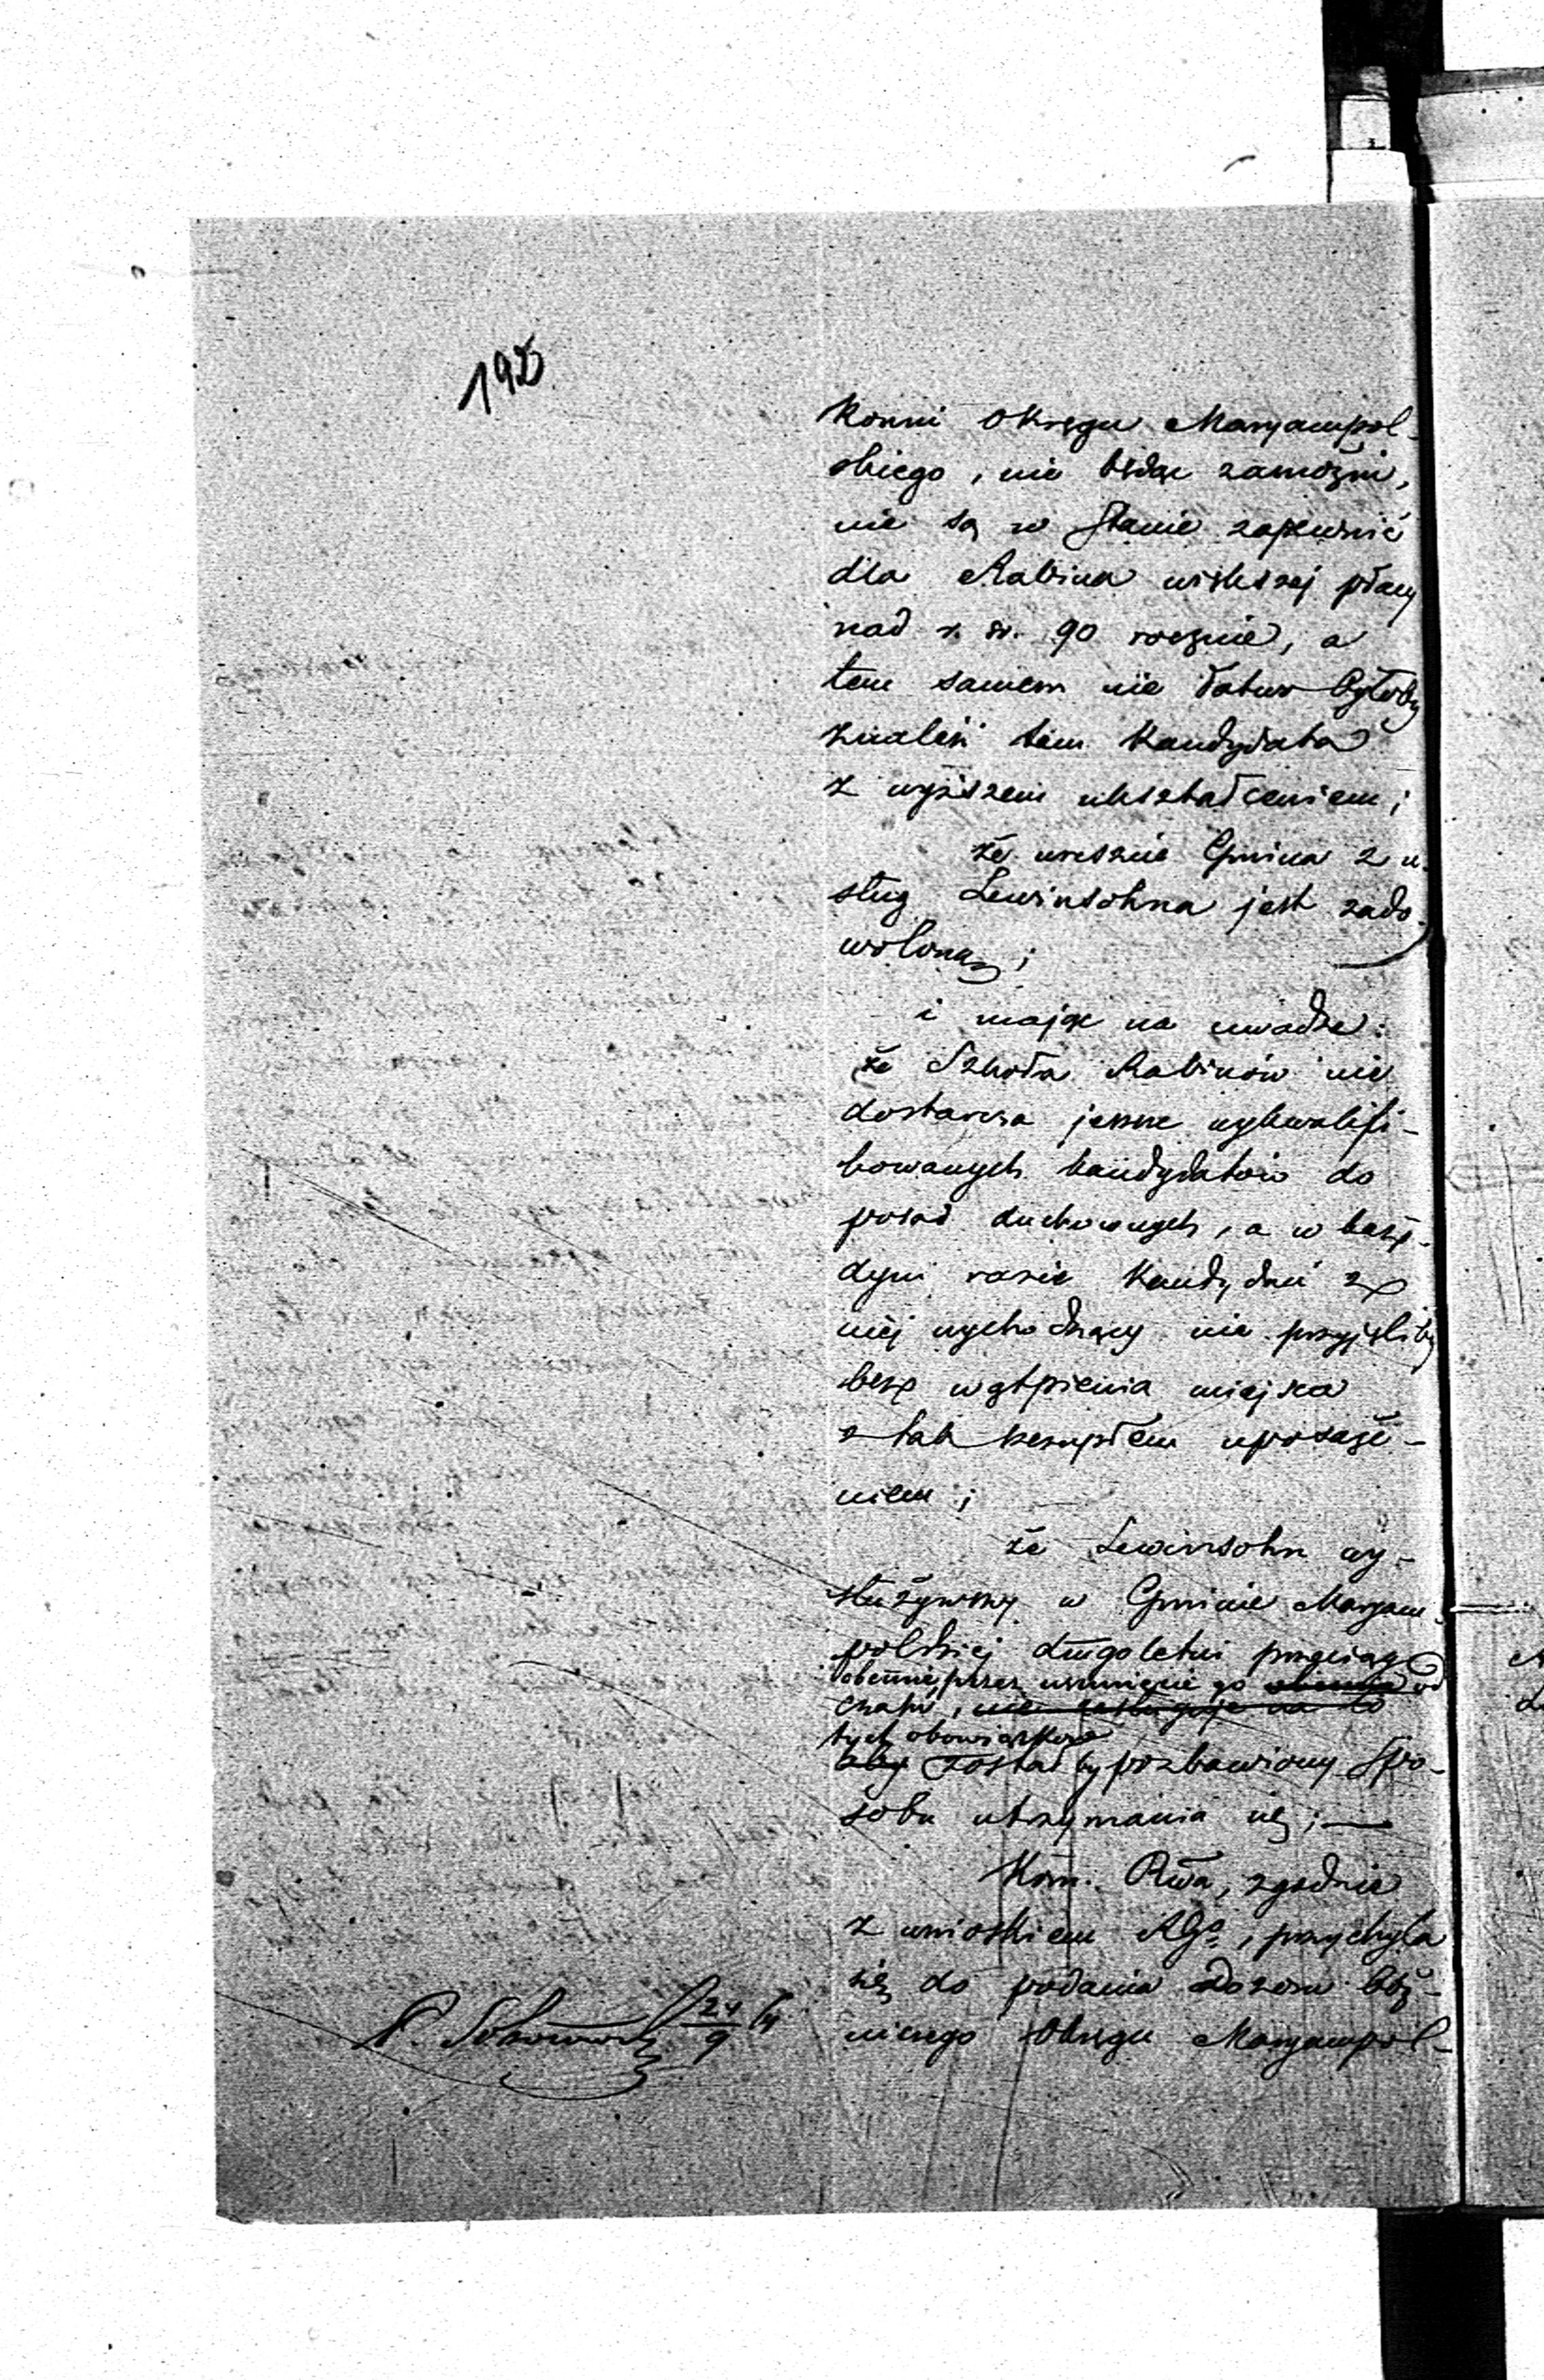 192
konni Okręgu Maryampol-
skiego, nie będąc zamożni,
nie są w stanie zapewnić
dla Rabina większej płacy
nad r. sr. 90 rocznie, a
tem samem nie łatwo byłoby
znaleść tam Kandydata
z wyższem ukształceniem;
że wreszcie Gmina z u-
sług Lewinsohna jest zado-
woloną;
i mając na uwadze:
że Szkoła Rabinów nie
dostarcza jeszcze wykwalifi-
kowanych kandydatów do
posad duchownych, a w każ-
dym razie Kandydaci z
niej wychodzący nie przyjęliby
bez wątpienia miejsca
z tak szczupłem uposaże-
niem;
że Lewinsohn wy-
służywszy w Gminie Maryam-
polskiej długoletni przeciąg
obecnie przez usunięcie go od
czasu, nie zasługuje na to
tych obowiązków
aby zostałby pozbawiony spo-
sobu utrzymania się;
Kom. Rwa, zgodnie
z wnioskiem RGo, przychyla
się do podania Dozoru Boż-
niczego Okręgu Maryampol-
24/9